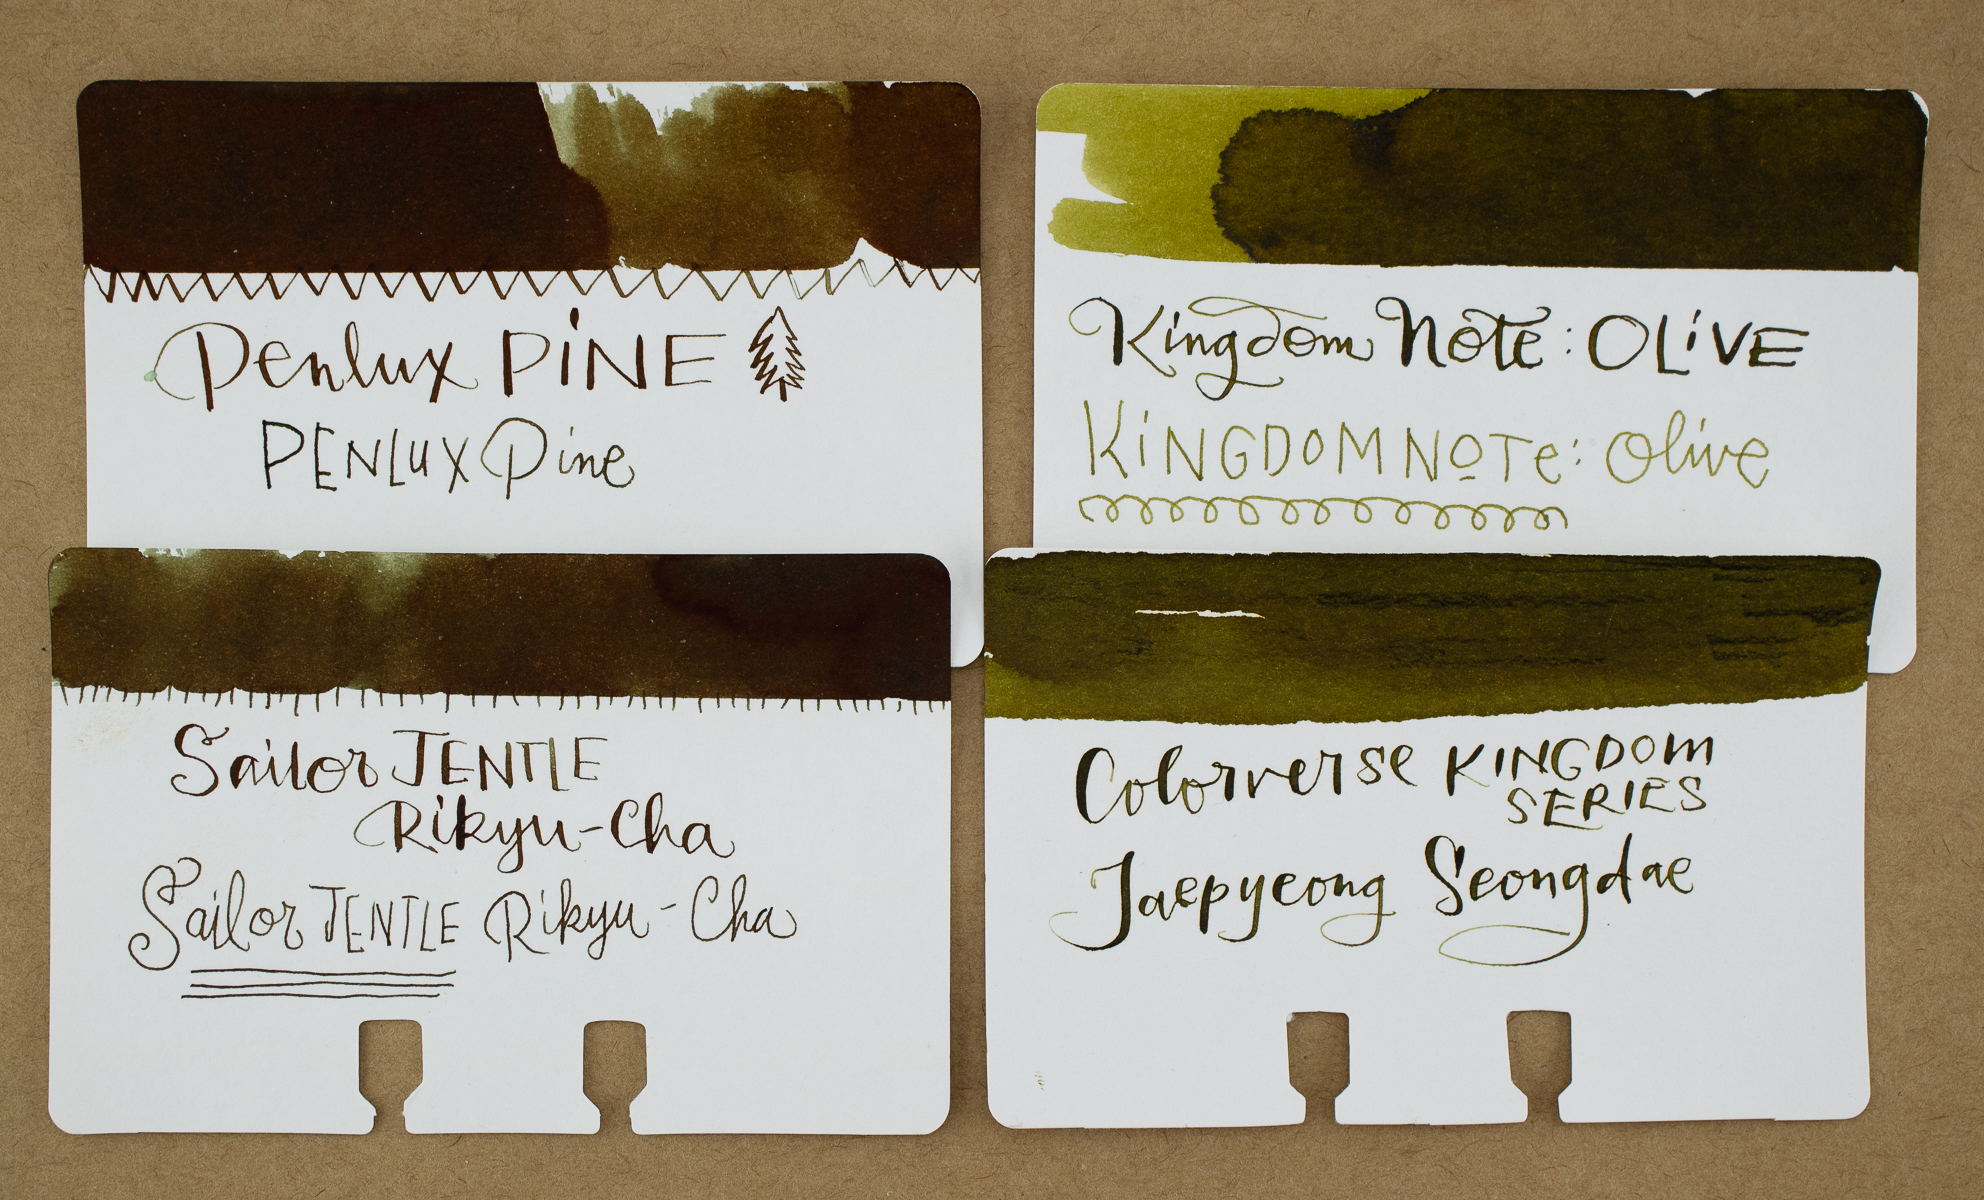 Penlux PiNE
PENLUX Pine
Kingdom Note: OLiVE
KiNGDOM NOTe: Olive
Sailor JENTLE
Rikyu-Cha
Sailor JENTLE Rikyu-Cha
Colorverse KINGDOM
SERIES
Jaepyeong Seongdae